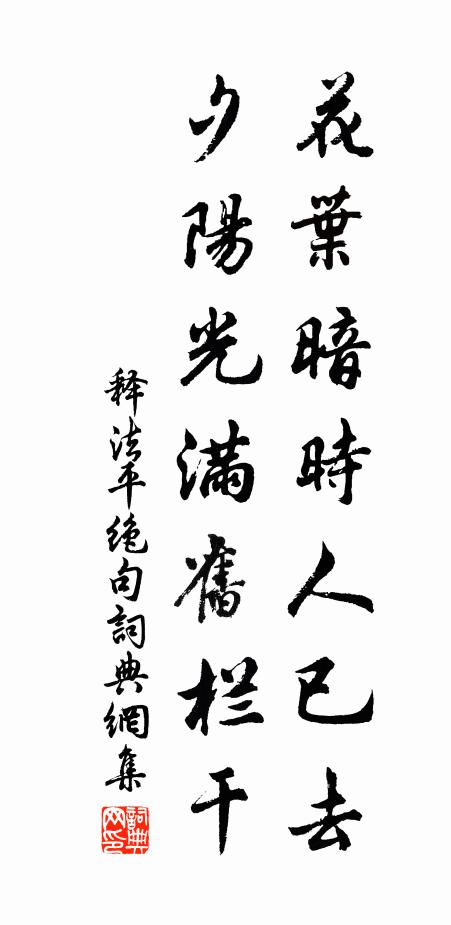 花葉暗時人已去
夕陽光滿舊栏干
释法平绝句詞典網集
詞典網印